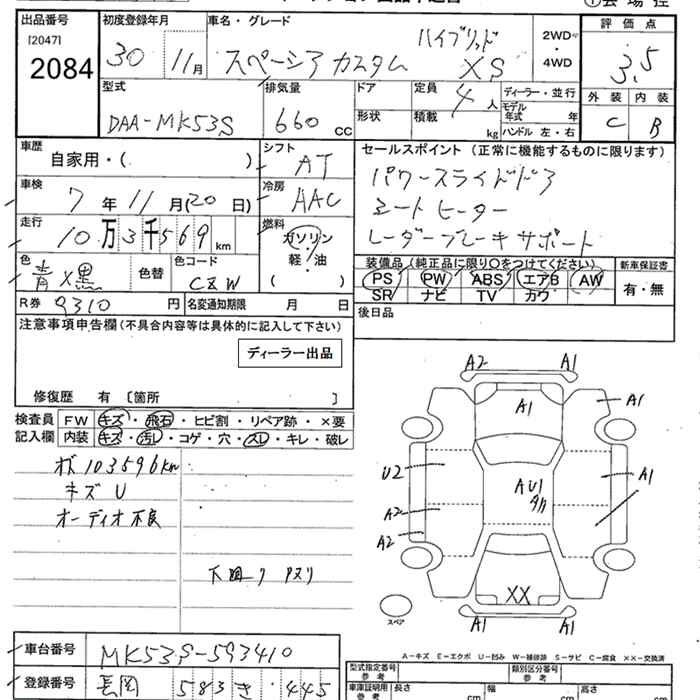 出品番号
[2047]
2084
初度登録年月
30 11月
車名・グレード
スペーシア カスタム ハイブリッド XS
2WD・4WD
評価点
3.5
外装 内装
C B
型式
DAA-MK53S
排気量
660 cc
ドア
形状
定員 4人
積載 kg
ディーラー・並行
モデル年式 年
ハンドル 左・右
車歴
自家用・( )
シフト
AT
セールスポイント(正常に機能するものに限ります)
パワースライドドア
シートヒーター
レーダーブレーキサポート
車検
7年11月(20日)
冷房
AAC
走行
10万3千569km
燃料
ガソリン
軽・油
( )
色
青×黒
色替
色コード
CZW
装備品(純正品に限り〇をつけてください)
PS PW ABS エアB AW
SR ナビ TV カワ
新車保証書
有・無
R券 9310円
名変通知期限 月 日
後日品
注意事項申告欄(不具合内容等は具体的に記入して下さい)
ディーラー出品
修復歴 有 [箇所 ]
検査員記入欄
FW キズ・飛石・ヒビ割・リペア跡・×要
内装 キズ・汚レ・コゲ・穴・スレ・キレ・破レ
103596km
キズ U
オーディオ不良
A2 A1
A1 A1
U2 A1
AU1
A2
A2
XX
A1 A1
スペア
A-キズ E-エクボ U-凹み W-補修跡 S-サビ C-腐食 ××-交換済
車台番号
MK53S-593410
登録番号
長岡 583 き ・445
型式指定番号 参考
類別区分番号 参考
車庫証明用 参考
長さ cm 幅 cm 高さ cm